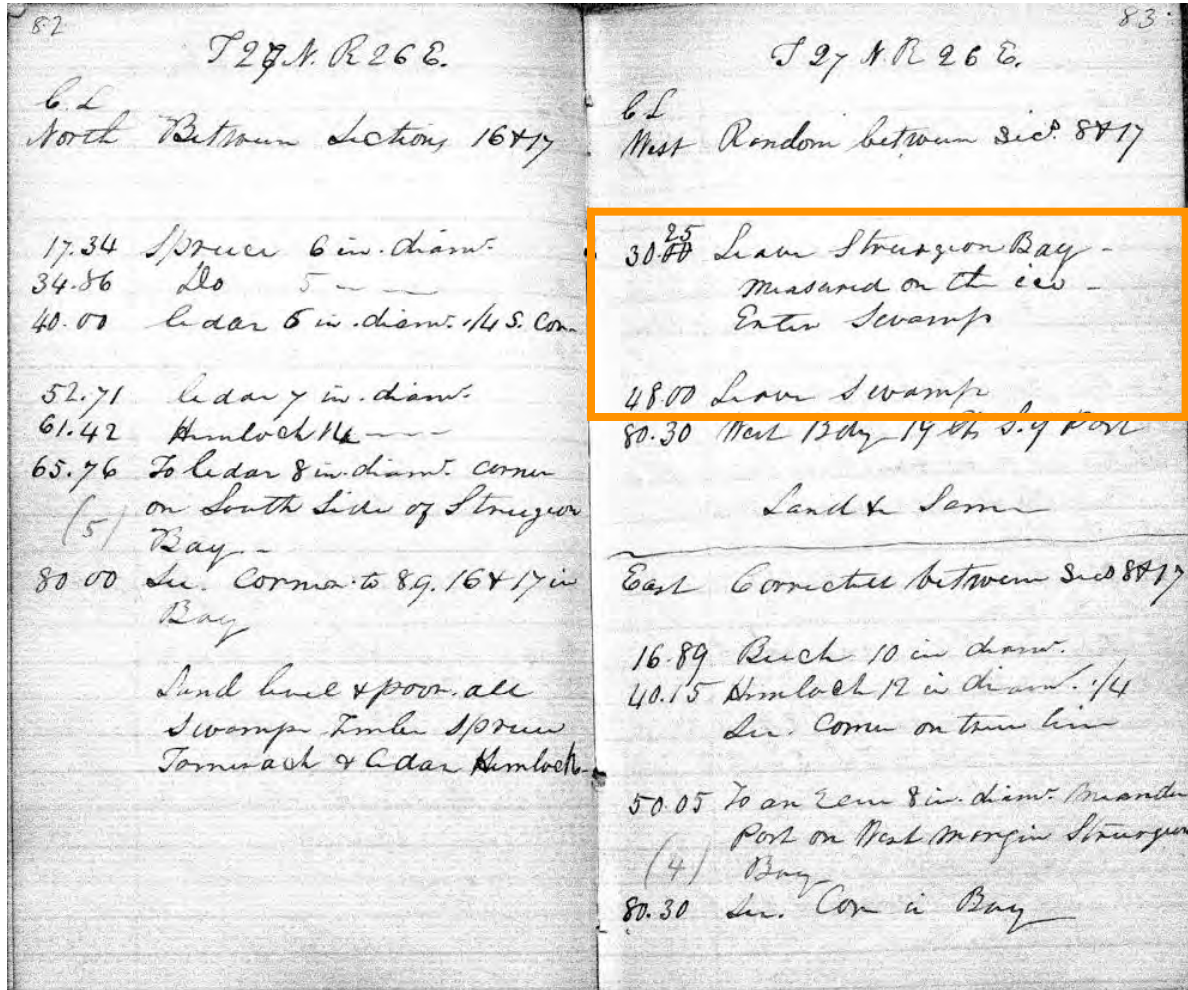 82
T 27 N. R 26 E.
C. L
North Between Sections 16 & 17
17.34 Spruce 6 in. diamr.
34.86 Do 5 — —
40.00 Cedar 6 in. diamr. 1/4 S. Cor.
52.71 Cedar 7 in. diamr.
61.42 Hemlock 14 — —
65.76 To Cedar 8 in. diamr. corner
on South Side of Sturgeon
(5) Bay —
80 00 Sec. Corner to 8 9. 16 & 17 in
Bay
Land level & poor. all
Swamp Timber Spruce
Tamerack & Cedar Hemlock
83
T 27 N. R 26 E.
C L
West Random between Secs. 8 & 17
25
30.00 Leave Sturgeon Bay —
measured on the ice —
Enter Swamp
48.00 Leave Swamp
80.30 West Bdy 19 lks S. of Post
Land & Same
East Corrected between Secs 8 & 17
16.89 Beech 10 in diamr.
40.15 Hemlock 12 in diamr. 1/4
Sec. Corner on true line
50.05 To an Elm 8 in. diamr. Meander
Post on West margin Sturgeon
(4) Bay
80.30 Sec. Cor in Bay